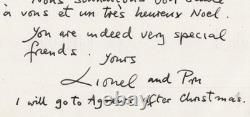 Nous
à vous et un très heureux Noel.
You are indeed very special
friends.
Yours
Lionel and Pm
I will go to After Christmas.
ebay